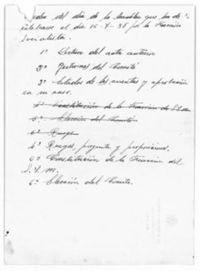 Orden del día de la Asamblea que ha de
celebrarse el día 15-7-38 por la Fracción
Socialista.
1º Lectura del acta anterior
2º Gestiones del Comité
3º Estados de las cuentas y aprobación
en su caso.
4º Constitución de la Fracción del
5º Elección del Comité
6º Ruegos
4º Ruegos, preguntas y proposiciones.
5º Constitución de la Fracción del
6º Elección del Comité.